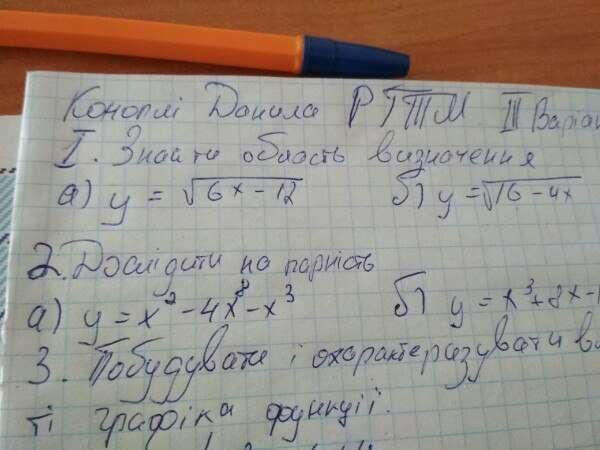 Коноплі Данила РТТМ III Варіан
I. Знайти область визначення
а) y = √6x - 12 б) y = √16 - 4x
2. Дослідити на парність
а) y = x² - 4x⁸ - x³ б) y = x³ + 8x - 1
3. Побудувати і охарактеризувати в
ті графіка функції.